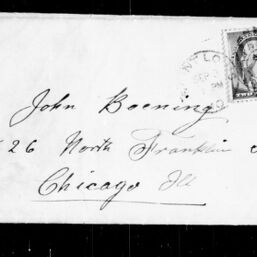 John Boening
26 North Franklin
Chicago Ill